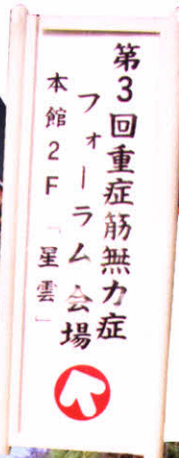 第3回重症筋無力症
フォーラム会場
本館2F「星雲」